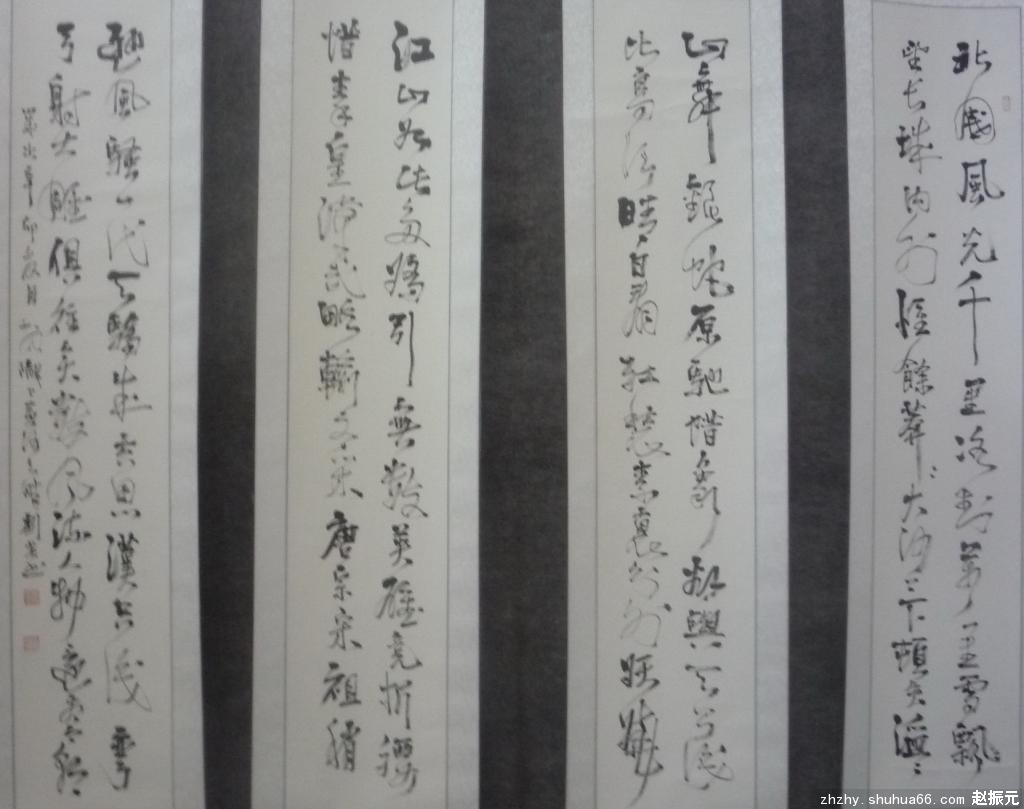 北國風光千里冰封萬里雪飄
望長城內外惟餘莽〻大河上下頓失滔〻
山舞銀蛇原馳蜡象欲與天公試
比高須晴日看紅裝素裹分外妖嬈
江山如此多嬌引無數英雄競折腰
惜秦皇漢武略輸文采唐宗宋祖稍
遜風騷一代天驕成吉思漢只識彎
弓射大雕俱往矣數風流人物還看今朝
歲次辛卯
zhzhy.shuhua66.com 赵振元